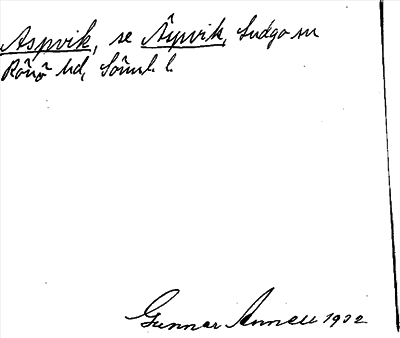 Aspvik, se Äspvik, Ludgo sn
Rönö hd, Söml. l.
Gunnar Annell 1932